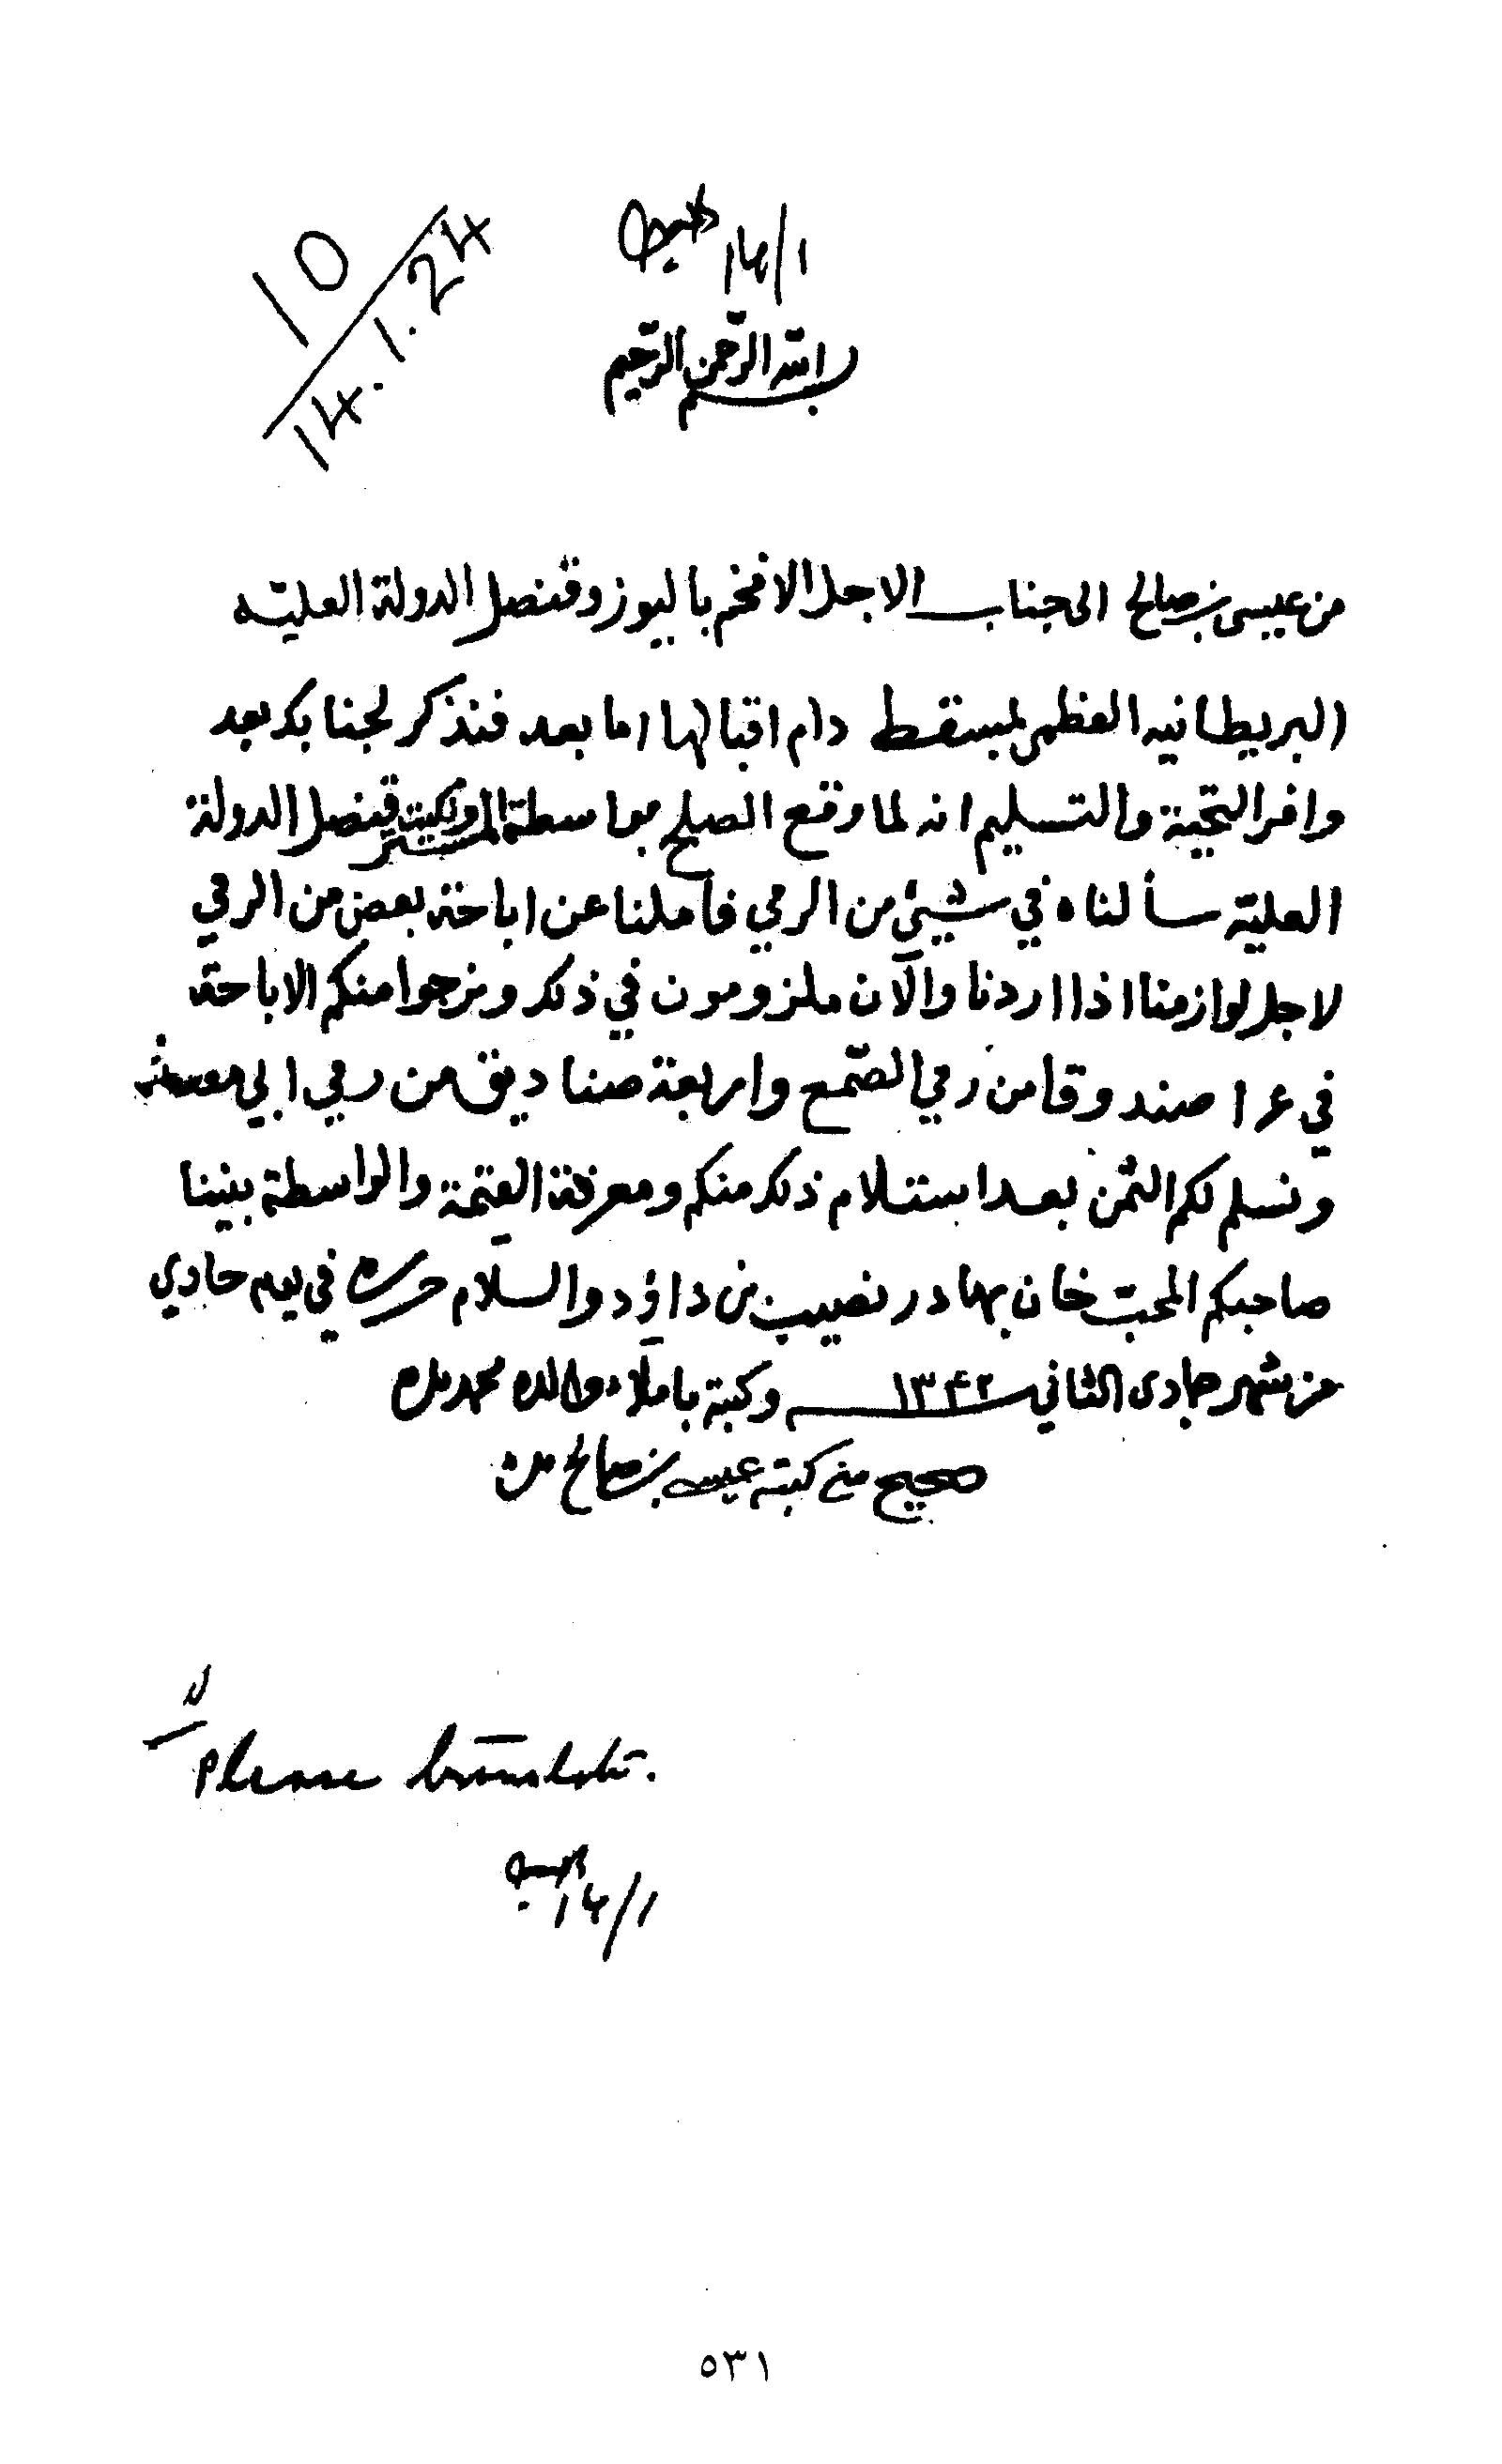 10
14.1.24
14/1
بسم الله الرحمن الرحيم
من عيسى بن صالح الى جناب الاجل الافخم باليوز وقنصل الدولة العليّه
البريطانيه العظمى لمسقط دام اقبالها اما بعد فنذكر لجنابك بعد
وافر التحية والتسليم انه لما وقع الصلح بواسطة قنصل الدولة
العليّة سألناه في شيئ من الرمي فأملنا عن اباحة بعض من الرمي
لاجل لوازمنا اذا اردنا والآن ملزومون في ذلك ونرجوا منكم الاباحة
في ١٤ صندوقا من رمي الصّمع واربعة صناديق من رمي ابي
ونسلم لكم الثمن بعد استلام ذلك منكم ومعرفة القيمة والواسطة بيننا
صاحبكم المحبّ خان بهادر نصيب بن داؤد والسلام حرر في يوم حادي
من شهر جمادى الثاني ١٣٤٢ وكتبة باملاء والده محمد بيده
صحيح مني كتبته عيسى بن صالح بيده
Please translate.
14/1
٥٣١